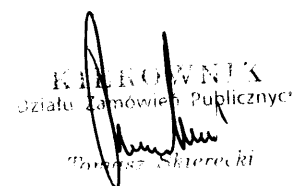 KIEROWNIK
Działu Zamówień Publicznyc
Tomasz Skierecki